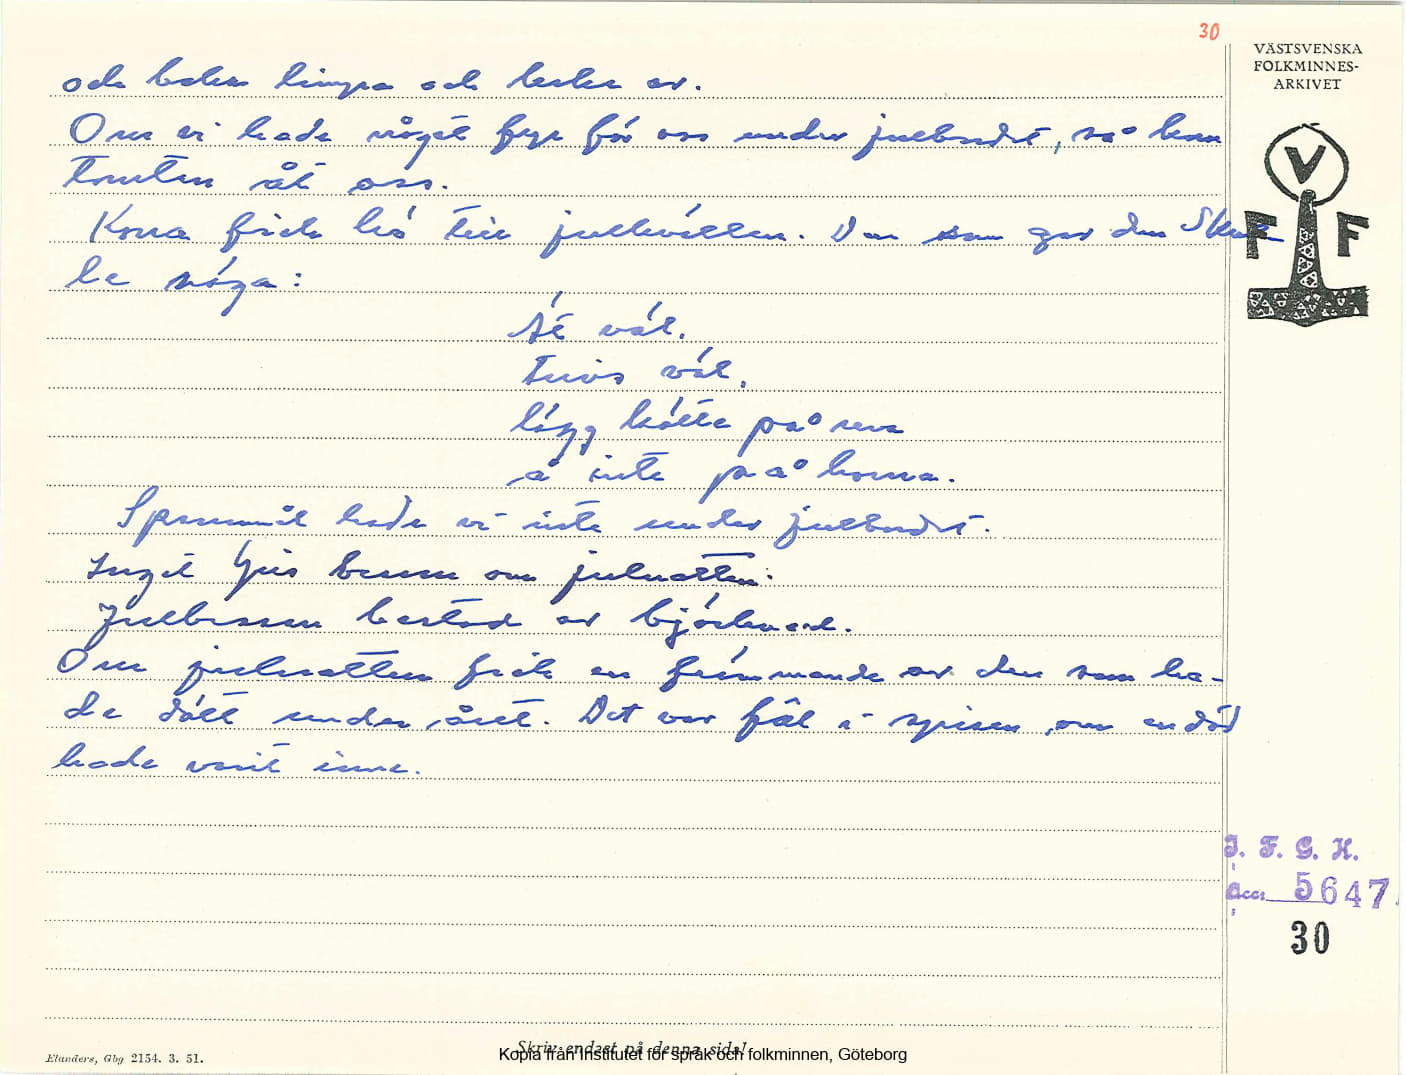 30
VÄSTSVENSKA
FOLKMINNES-
ARKIVET
V
F F
och baka limpa och kakor av.
Om vi hade något frö för oss under julbordet, så kom
tomten åt oss.
Korna fick hö till julkvällen. Den som gav dem skul-
le säga:
Ät väl,
trivs väl,
lägg köttet på reva
å inte på borna.
Spannmål hade vi inte under julbordet.
Inget ljus brann om julnatten.
Julbrasan bestod av björkved.
Om julnatten fick en främmande av den som ha-
de dött under året. Det var fäl i spisen, om en död
hade varit inne.
I. F. G. H.
Acc: 5647.
30
Elanders, Gbg 2154. 3. 51.
Skriv endast på denna sida!
Kopia från Institutet för språk och folkminnen, Göteborg